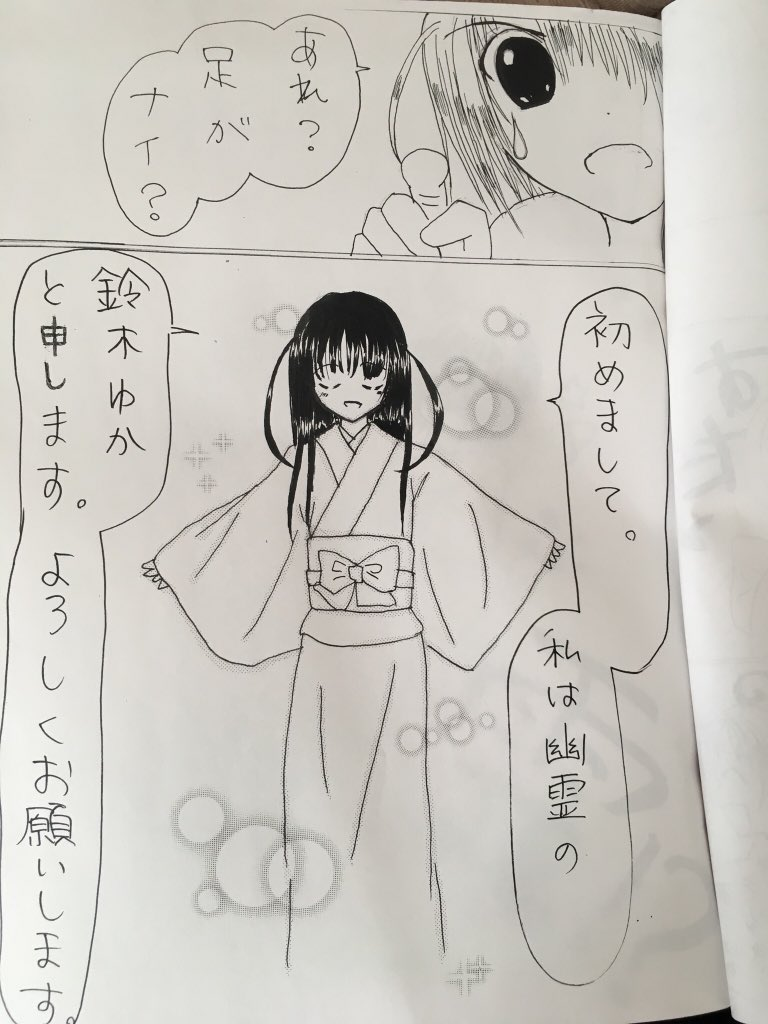 あれ?
足が
ナイ?
初めまして。
私は幽霊の
鈴木ゆか
と申します。
よろしくお願いします。